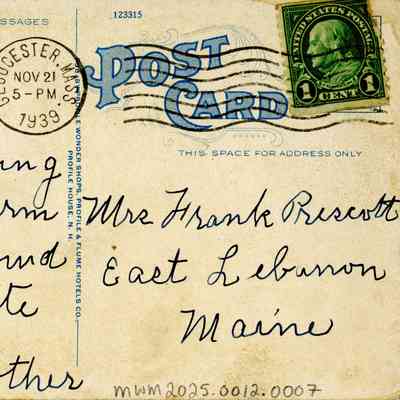 SSAGES
123315
POST CARD
THIS SPACE FOR ADDRESS ONLY
GLOUCESTER, MASS
NOV 21
5-PM
1939
UNITED STATES POSTAGE
1 CENT 1
WONDER SHOPS, PROFILE & FLUME HOTELS CO.
PROFILE HOUSE, N. H.
ing
rm
und
te
other
Mrs Frank Prescott
East Lebanon
Maine
MWM2025.0012.0007